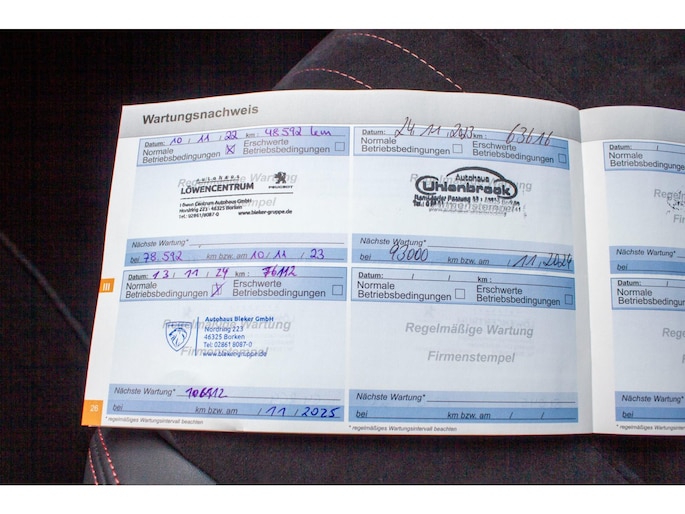 Wartungsnachweis
Datum: 10 / 11 / 22 km: 48 592 km
Normale Betriebsbedingungen X Erschwerte Betriebsbedingungen
Regelmäßige Wartung
autohaus
LÖWENCENTRUM PEUGEOT
Löwen Centrum Autohaus GmbH
Nordring 223 · 46325 Borken
Tel.: 02861/8087-0 www.bleker-gruppe.de
Firmenstempel
Nächste Wartung*
bei 78.592 km bzw. am 10 / 11 / 23
Datum: 24 / 11 / 2023 km: 63616
Normale Betriebsbedingungen Erschwerte Betriebsbedingungen
Regelmäßige Wartung
Autohaus
Uhlenbrock
Firmenstempel
Nächste Wartung*
bei 93000 km bzw. am / 11 / 2024
Datum: 13 / 11 / 24 km: 76112
Normale Betriebsbedingungen X Erschwerte Betriebsbedingungen
Regelmäßige Wartung
Autohaus Bleker GmbH
Nordring 223
46325 Borken
Tel: 02861 8087-0
www.bleker-gruppe.de
Firmenstempel
Nächste Wartung* 106112
bei km bzw. am / 11 / 2025
Datum: / / km:
Normale Betriebsbedingungen Erschwerte Betriebsbedingungen
Regelmäßige Wartung
Firmenstempel
Nächste Wartung*
bei km bzw. am / /
26
* regelmäßiges Wartungsintervall beachten
* regelmäßiges Wartungsintervall beachten
III